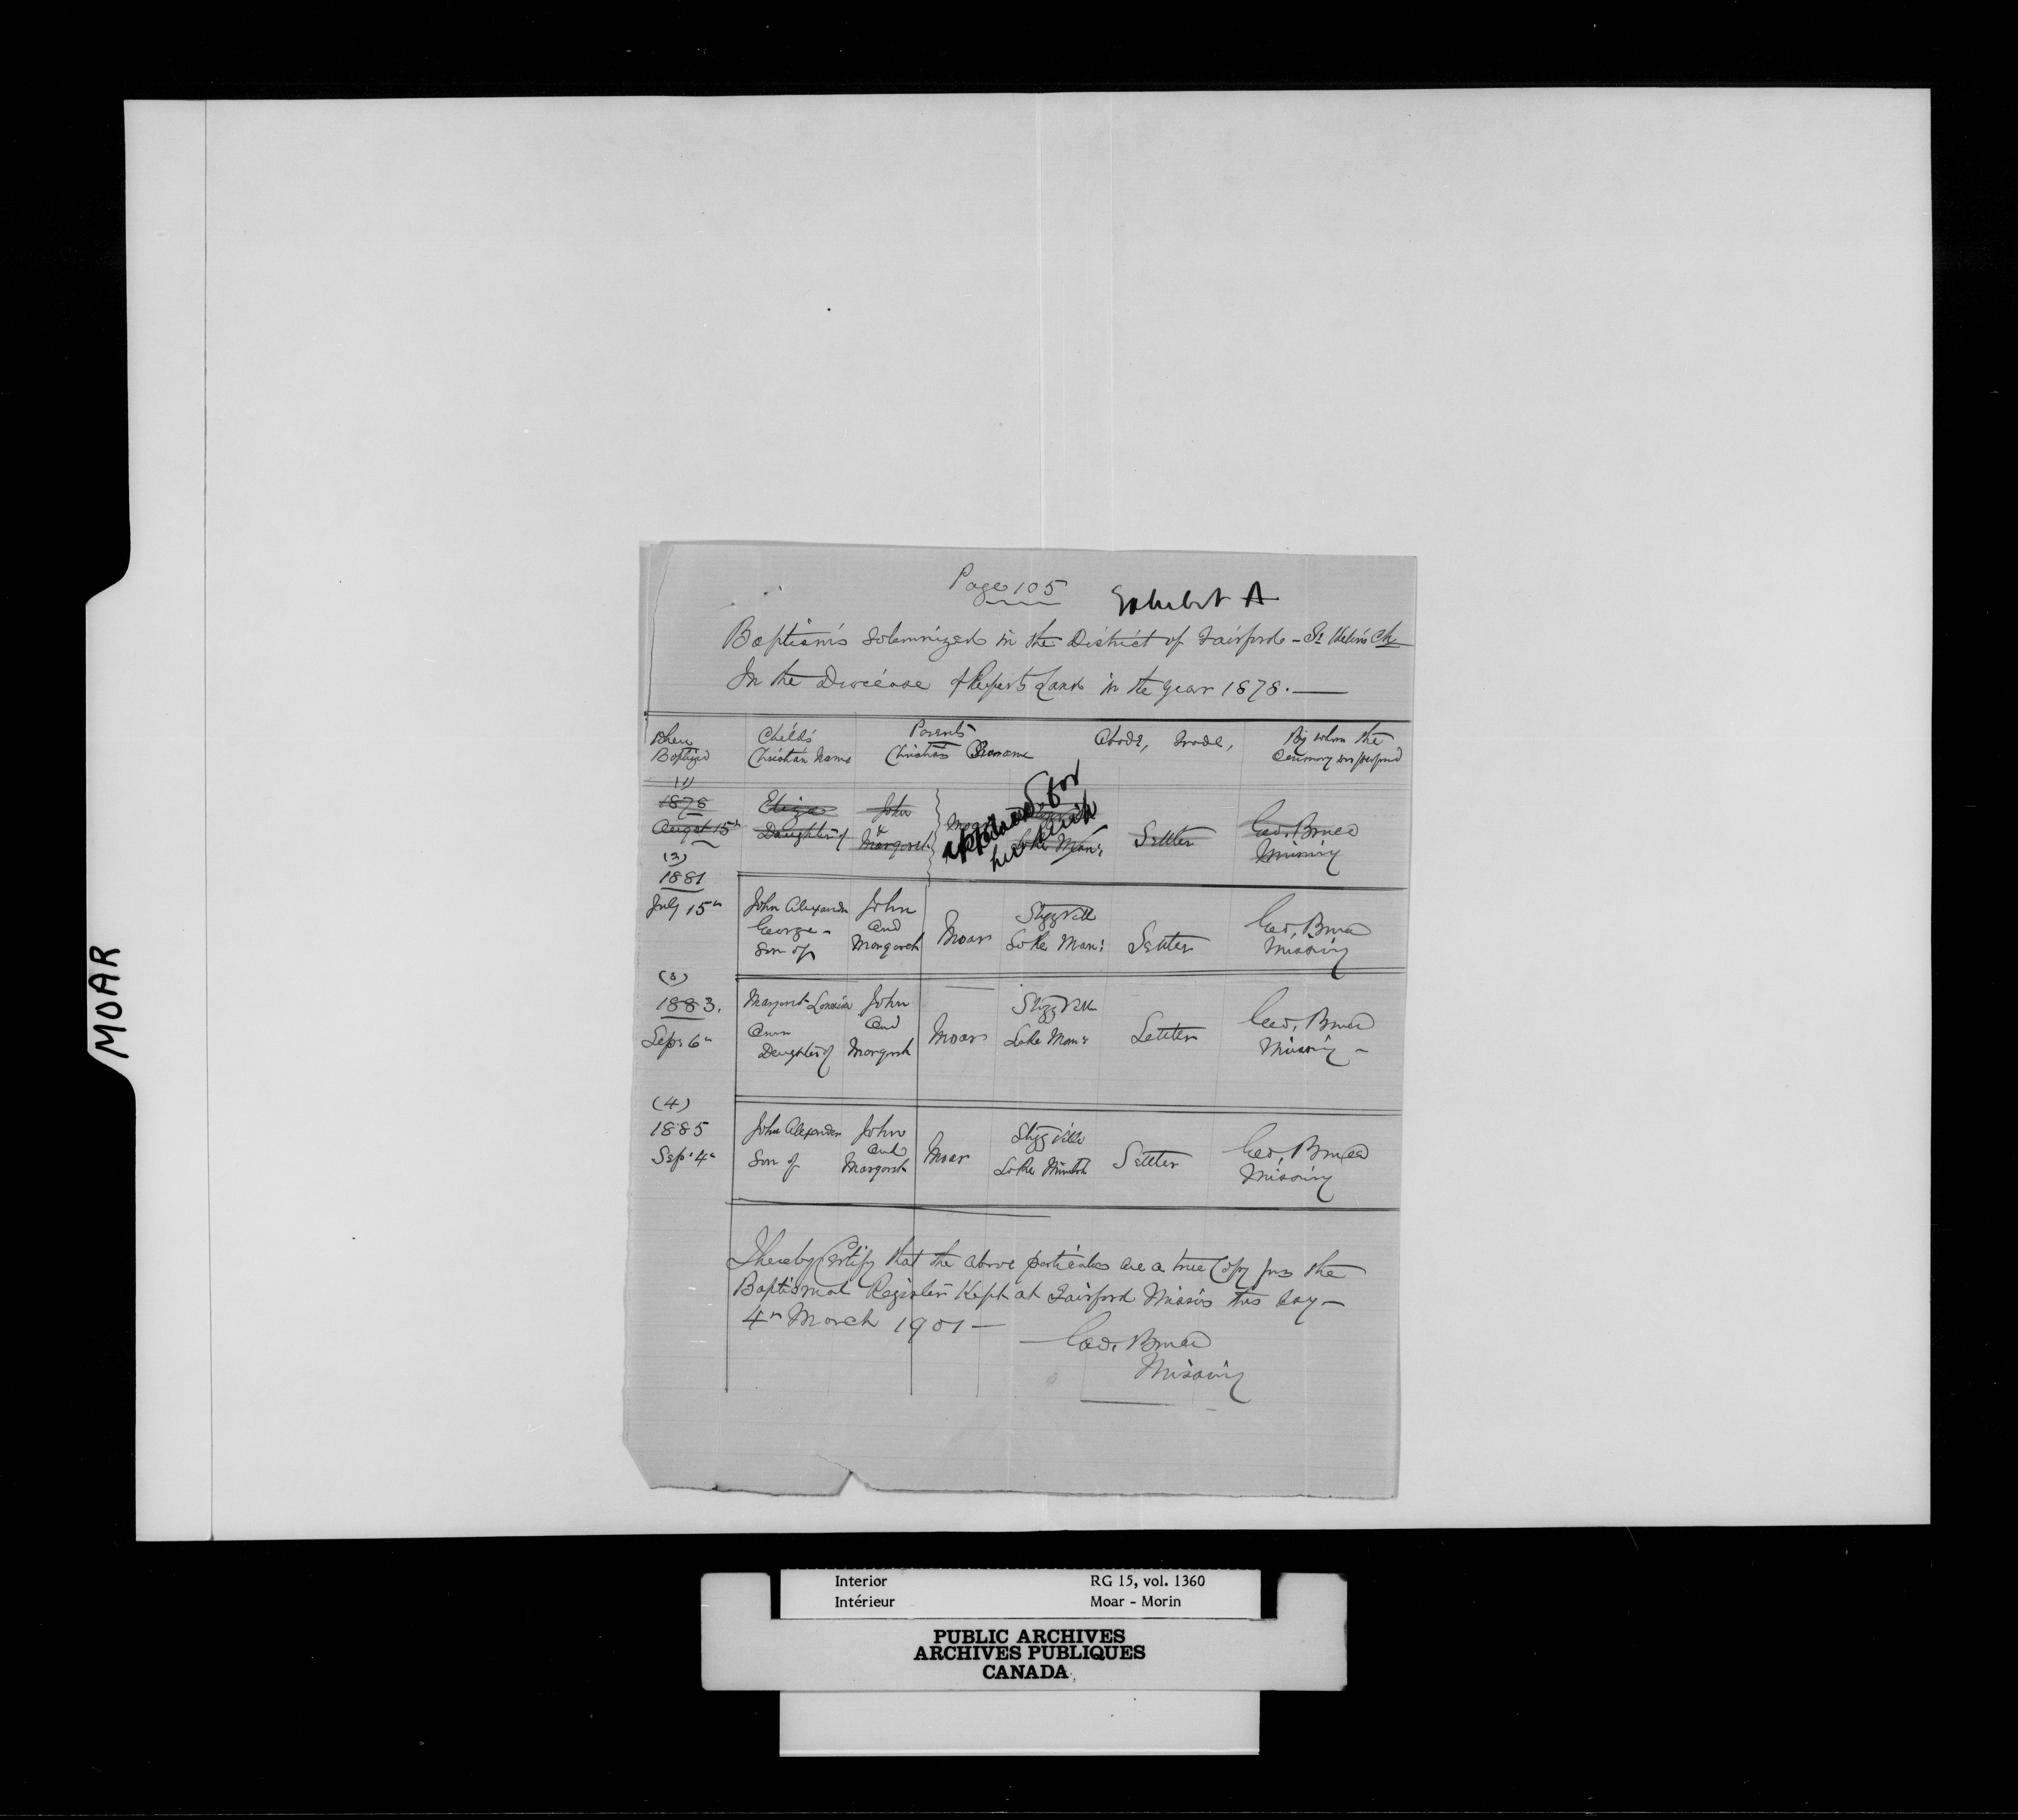 Page 105
Exhibit A
Baptisms solemnized in the District of Fairford - St Helen's Ch
In the Diocease of Ruperts Land in the year 1878.
When Baptized
Child's Christian Name
Parents
Christian Surname
Abode, Trade,
By whom the Ceremony was
(1)
1878
August 15th
Eliza
Daughter of
John
&
Margaret
Moar
applied for
herself
Lake Man:
Settler
Geo. Bruce
Missiony
(2)
1881
July 15th
John Alexander
George -
Son of
John
and
Margaret
Moar
Stagg Vill
Lake Man:
Settler
Geo. Bruce
Missiony
(3)
1883.
Sep: 6th
Margaret Louisia
Ann
Daughter of
John
and
Margaret
Moar
Stagg Vill
Lake Man:
Settler
Geo. Bruce
Missiony -
(4)
1885
Sep: 4th
John Alexander
Son of
John
and
Margaret
Moar
Stagg Ville
Lake
Settler
Geo. Bruce
Missiony
I hereby Certify that the above particulars are a true Copy from the
Baptismal Register Kept at Fairford Mission this day -
4th March 1901 -
Geo. Bruce
Missiony
MOAR
Interior RG 15, vol. 1360
Intérieur Moar - Morin
PUBLIC ARCHIVES
ARCHIVES PUBLIQUES
CANADA